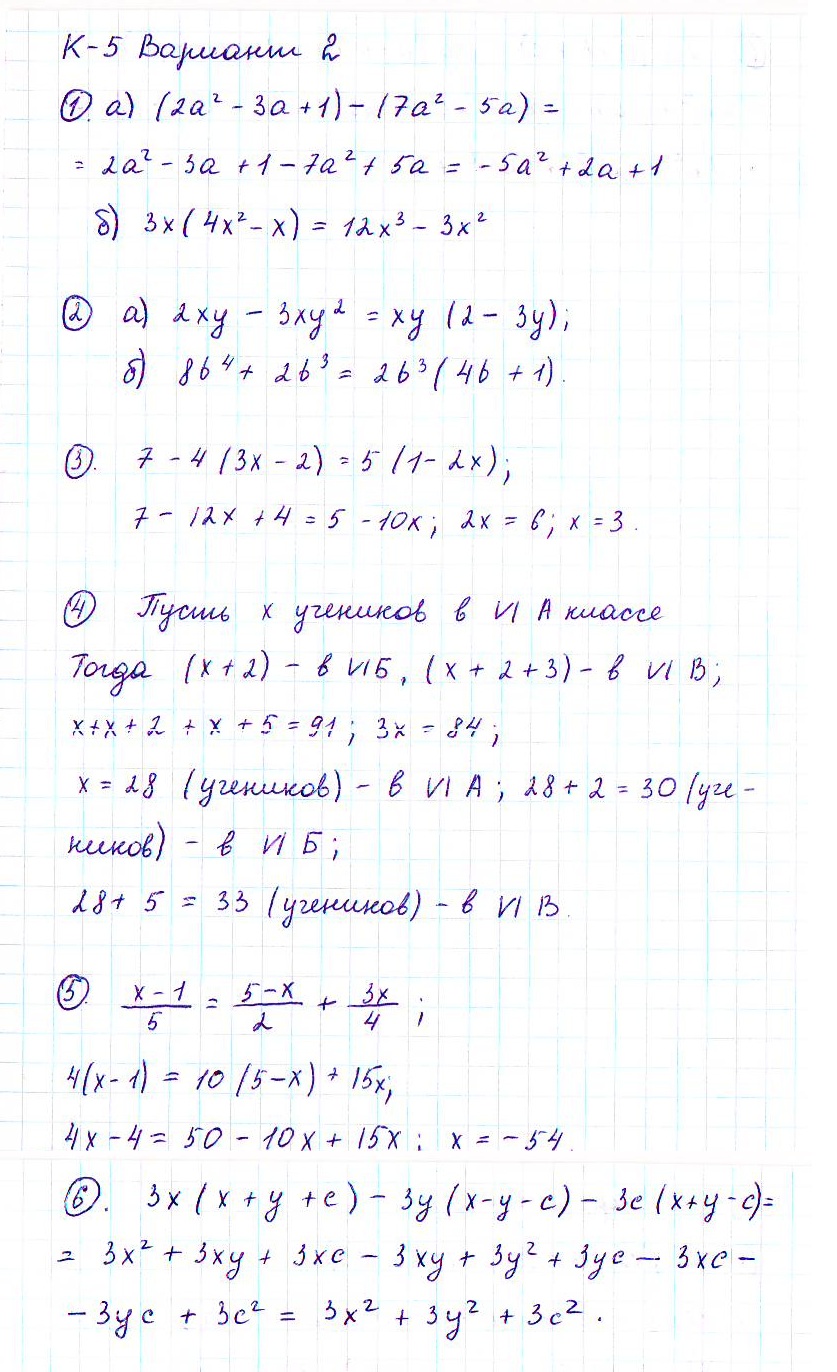 К-5 Вариант 2
① а) (2a² - 3a + 1) - (7a² - 5a) =
= 2a² - 3a + 1 - 7a² + 5a = -5a² + 2a + 1
б) 3x(4x² - x) = 12x³ - 3x²
② а) 2xy - 3xy² = xy (2 - 3y);
б) 8b⁴ + 2b³ = 2b³(4b + 1).
③. 7 - 4(3x - 2) = 5(1 - 2x);
7 - 12x + 4 = 5 - 10x; 2x = 6; x = 3.
④ Пусть x учеников в VI А классе
Тогда (x + 2) - в VI Б, (x + 2 + 3) - в VI В;
x + x + 2 + x + 5 = 91; 3x = 84;
x = 28 (учеников) - в VI А; 28 + 2 = 30 (уче-
ников) - в VI Б;
28 + 5 = 33 (учеников) - в VI В.
⑤. (x - 1)/5 = (5 - x)/2 + 3x/4;
4(x - 1) = 10(5 - x) + 15x;
4x - 4 = 50 - 10x + 15x; x = -54.
⑥. 3x(x + y + c) - 3y(x - y - c) - 3c(x + y - c) =
= 3x² + 3xy + 3xc - 3xy + 3y² + 3yc - 3xc -
- 3yc + 3c² = 3x² + 3y² + 3c².